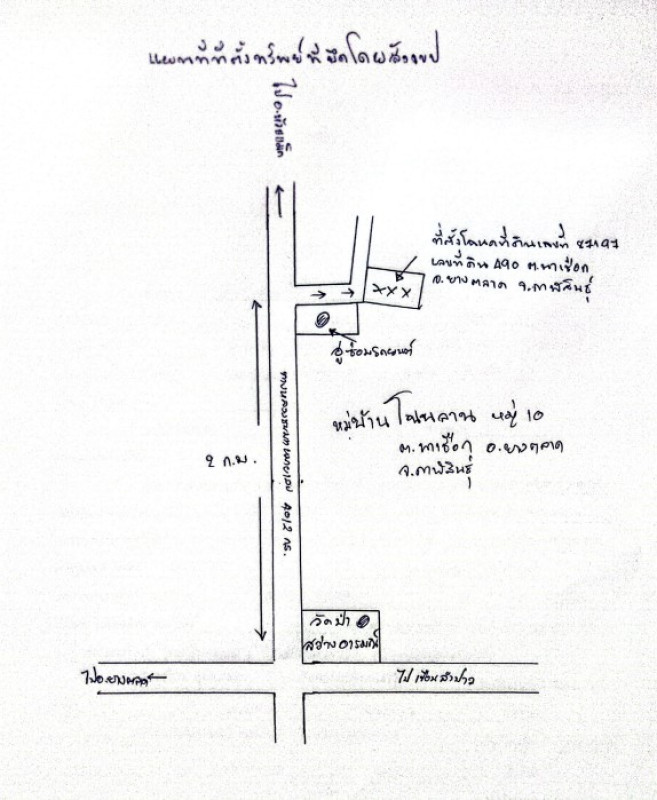 แผนที่ที่ตั้งทรัพย์ที่ยึดโดยสังเขป
ไป อ.
ที่ตั้งโฉนดที่ดินเลขที่ 27197
เลขที่ดิน 490 ต.นาเชือก
อ.ยางตลาด จ.กาฬสินธุ์
อู่ซ่อมรถยนต์
หมู่บ้าน โนนลาน หมู่ 10
ต.นาเชือก อ.ยางตลาด
จ.กาฬสินธุ์
2 ก.ม.
ทางหลวงชนบทหมายเลข 4012 กส.
วัดป่า
สว่างอารมณ์
ไป อ.ยางตลาด
ไป เขื่อนลำปาว